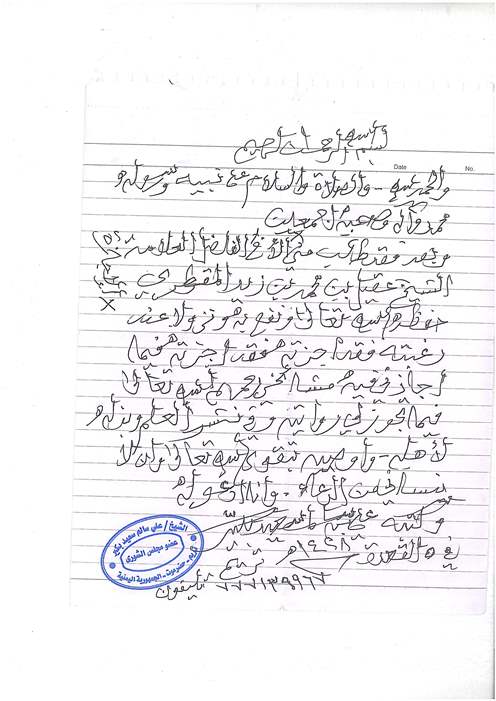 بسم الله الرحمن الرحيم
Date
No.
والحمد لله - والصلاة والسلام على نبيه ورسوله
محمد وآله وصحبه أجمعين
وبعد فقد طلب مني الأخ الفاضل العلامة
الشيخ عقيل بن محمد بن زيد المقطري
حفظهم الله تعالى ونفع به ونزولا عند
رغبته فقد أجزته فقد أجزته فيما
أجازني فيه مشائخي رحمهم الله تعالى
فيما يجوز لي روايته ونشر العلم وبذله
لأهله - وأوصيه بتقوى الله تعالى وأن لا
ينساني من الدعاء - وأنا أدعو له
وكتبه علي سالم سعيد بكير
في القعدة ١٤٢٨هـ تريم
تليفون ٧٧٧١٣٩٩٦٧
الشيخ / علي سالم سعيد بكير
عضو مجلس الشورى
تريم - حضرموت - الجمهورية اليمنية